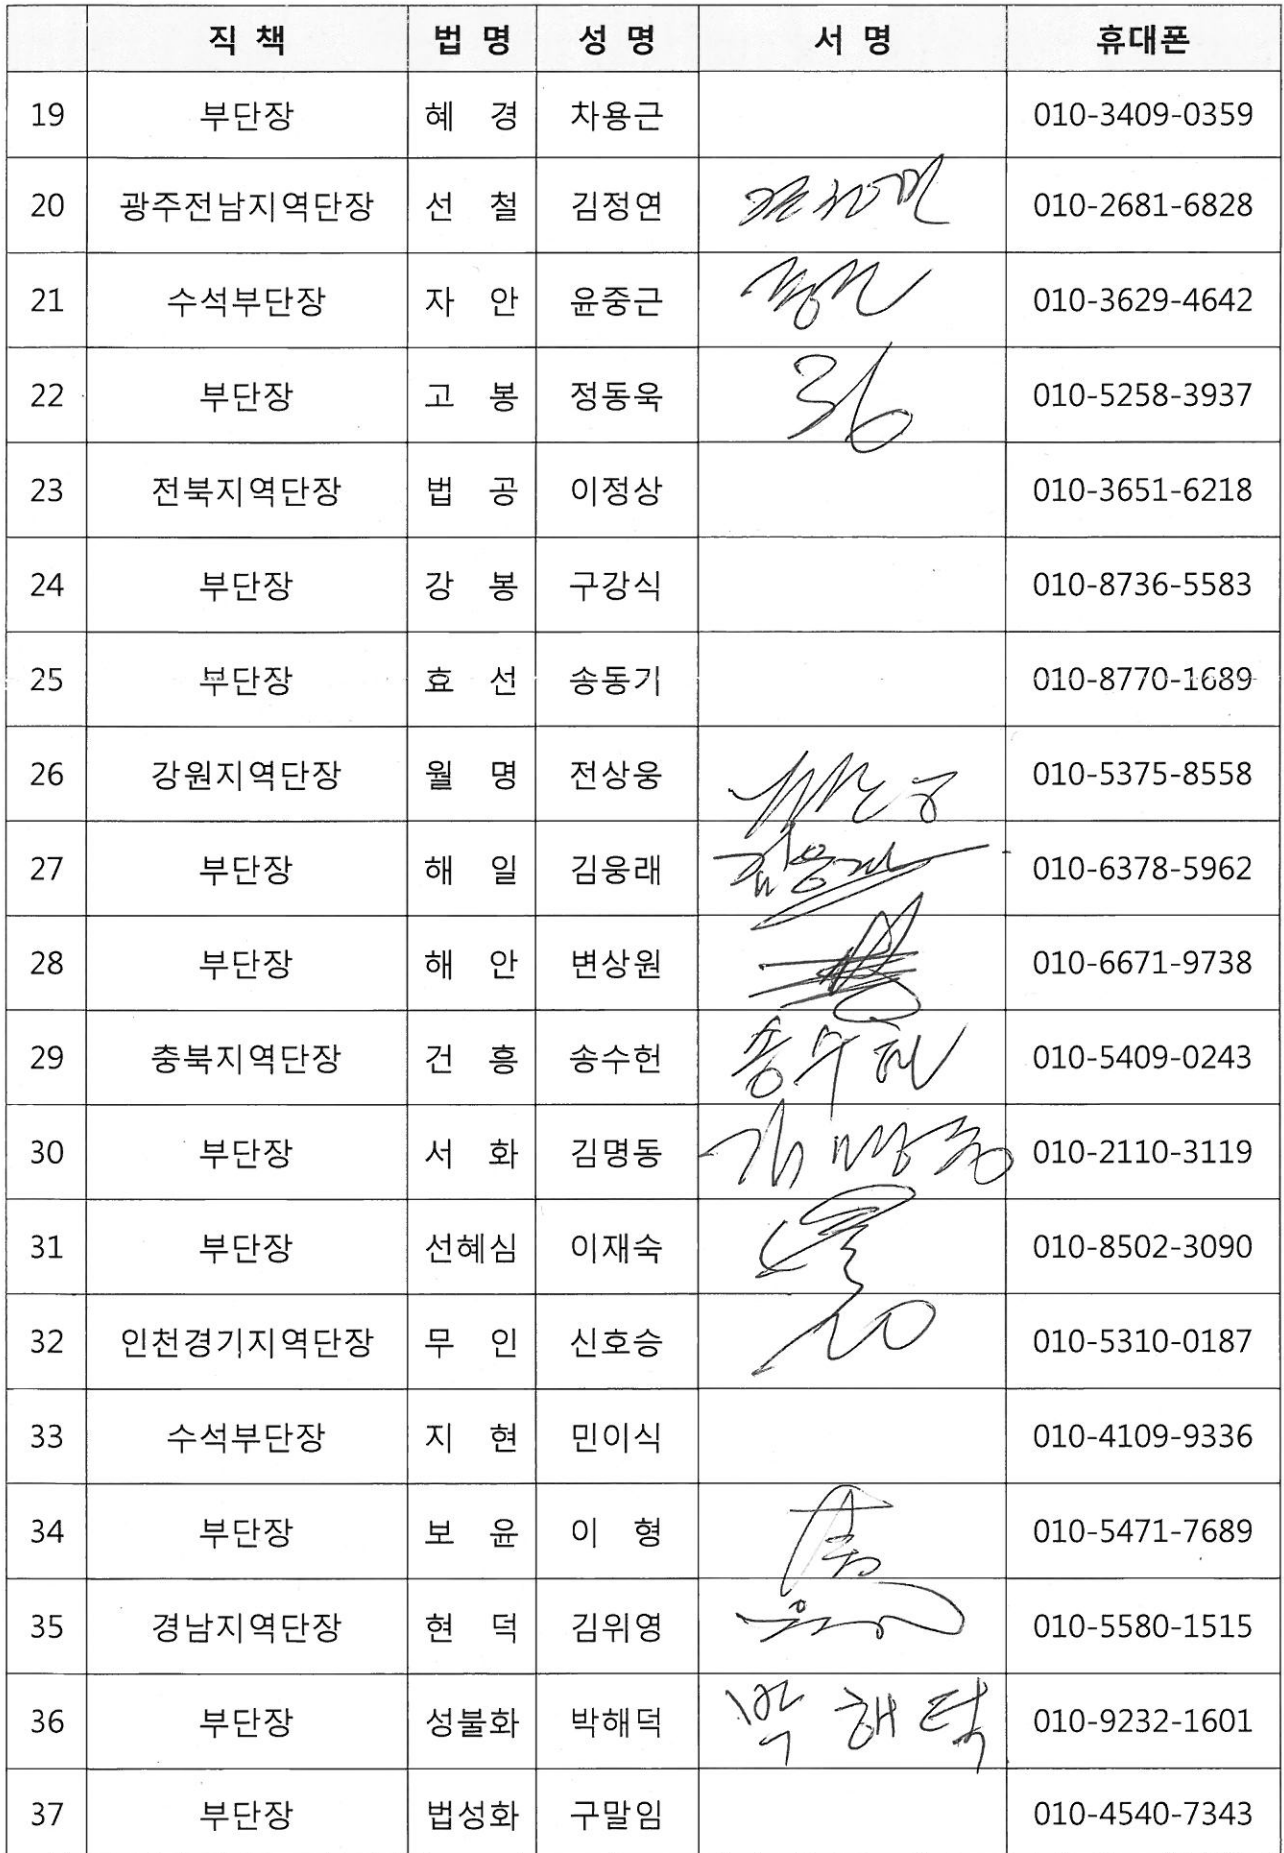 직 책 법 명 성 명 서 명 휴대폰
19 부단장 혜 경 차용근 010-3409-0359
20 광주전남지역단장 선 철 김정연 010-2681-6828
21 수석부단장 자 안 윤중근 010-3629-4642
22 부단장 고 봉 정동욱 010-5258-3937
23 전북지역단장 법 공 이정상 010-3651-6218
24 부단장 강 봉 구강식 010-8736-5583
25 부단장 효 선 송동기 010-8770-1689
26 강원지역단장 월 명 전상웅 010-5375-8558
27 부단장 해 일 김웅래 010-6378-5962
28 부단장 해 안 변상원 010-6671-9738
29 충북지역단장 건 흥 송수헌 송수헌 010-5409-0243
30 부단장 서 화 김명동 김명동 010-2110-3119
31 부단장 선혜심 이재숙 010-8502-3090
32 인천경기지역단장 무 인 신호승 010-5310-0187
33 수석부단장 지 현 민이식 010-4109-9336
34 부단장 보 윤 이 형 010-5471-7689
35 경남지역단장 현 덕 김위영 010-5580-1515
36 부단장 성불화 박해덕 박해덕 010-9232-1601
37 부단장 법성화 구말임 010-4540-7343